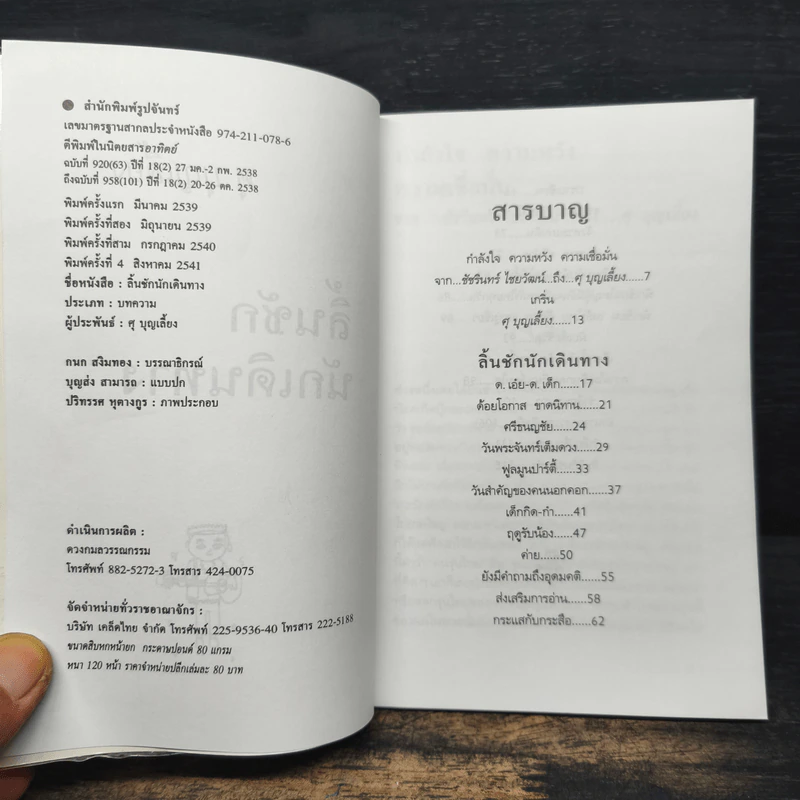 ● สำนักพิมพ์รูปจันทร์
เลขมาตรฐานสากลประจำหนังสือ 974-211-078-6
ตีพิมพ์ในนิตยสารอาทิตย์
ฉบับที่ 920(63) ปีที่ 18(2) 27 มค.-2 กพ. 2538
ถึงฉบับที่ 958(101) ปีที่ 18(2) 20-26 ตค. 2538
พิมพ์ครั้งแรก มีนาคม 2539
พิมพ์ครั้งที่สอง มิถุนายน 2539
พิมพ์ครั้งที่สาม กรกฎาคม 2540
พิมพ์ครั้งที่ 4 สิงหาคม 2541
ชื่อหนังสือ : ลิ้นชักนักเดินทาง
ประเภท : บทความ
ผู้ประพันธ์ : ศุ บุญเลี้ยง
กนก สงิมทอง : บรรณาธิกรณ์
บุญส่ง สามารถ : แบบปก
ปริทรรศ หุตางกูร : ภาพประกอบ
ดำเนินการผลิต :
ดวงกมลวรรณกรรม
โทรศัพท์ 882-5272-3 โทรสาร 424-0075
จัดจำหน่ายทั่วราชอาณาจักร :
บริษัท เคล็ดไทย จำกัด โทรศัพท์ 225-9536-40 โทรสาร 222-5188
ขนาดสิบหกหน้ายก กระดาษปอนด์ 80 แกรม
หนา 120 หน้า ราคาจำหน่ายปลีกเล่มละ 80 บาท
สารบาญ
กำลังใจ ความหวัง ความเชื่อมั่น
จาก...ชัชรินทร์ ไชยวัฒน์...ถึง...ศุ บุญเลี้ยง......7
เกริ่น
ศุ บุญเลี้ยง......13
ลิ้นชักนักเดินทาง
ด.เอ๋ย-ด.เด็ก......17
ด้อยโอกาส ขาดนิทาน......21
ศรีธนญชัย......24
วันพระจันทร์เต็มดวง......29
ฟูลมูนปาร์ตี้......33
วันสำคัญของคนนอกคอก......37
เด็กกิด-กำ......41
ฤดูรับน้อง......47
ค่าย......50
ยังมีคำถามถึงอุดมคติ......55
ส่งเสริมการอ่าน......58
กระแสกับกระสือ......62